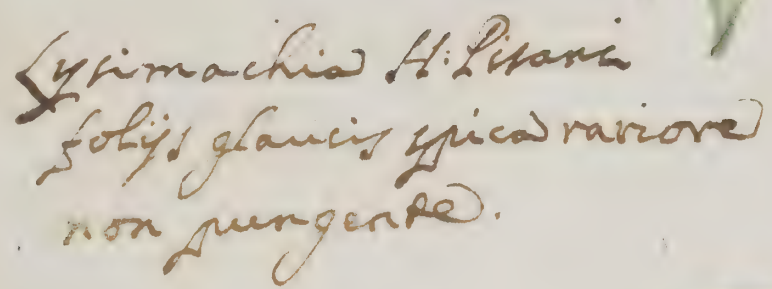 Lysimachia H: Pisani
folijs glaucis spica rariore
non pungente.